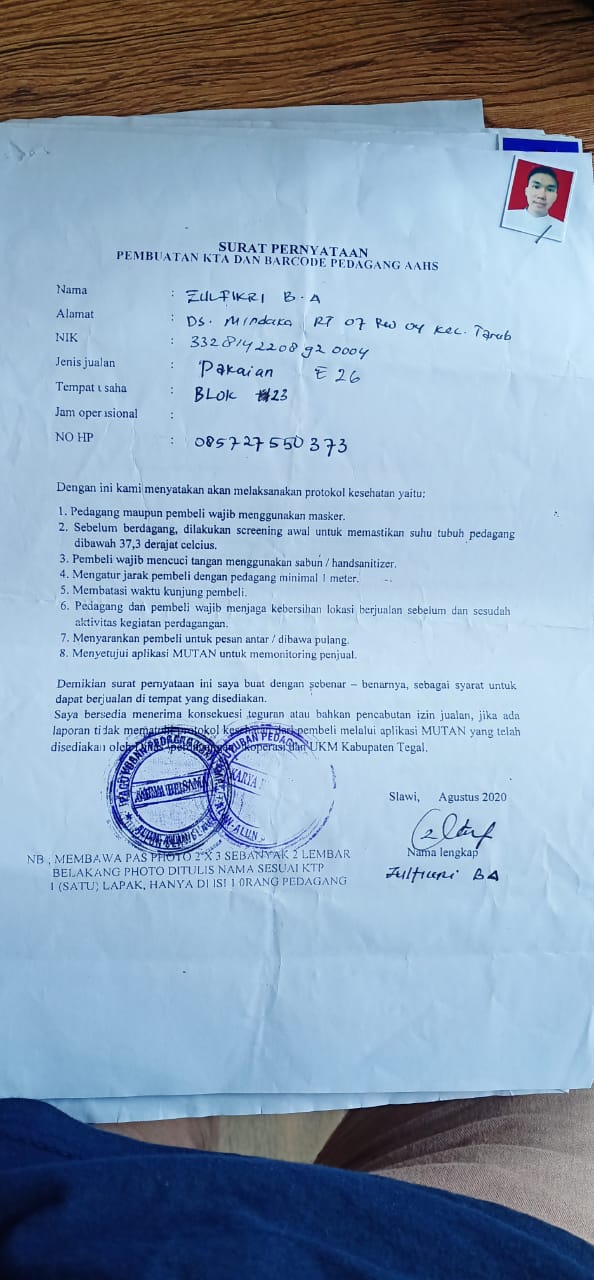 SURAT PERNYATAAN
PEMBUATAN KTA DAN BARCODE PEDAGANG AAHS
Nama : ZULFIKRI B.A
Alamat : Ds. Mindaka RT 07 RW 04 Kec. Tarub
NIK : 3328142208920004
Jenis jualan : Pakaian E 26
Tempat usaha : BLOK 23
Jam operasional :
NO HP : 085727550373
Dengan ini kami menyatakan akan melaksanakan protokol kesehatan yaitu:
1. Pedagang maupun pembeli wajib menggunakan masker.
2. Sebelum berdagang, dilakukan screening awal untuk memastikan suhu tubuh pedagang
dibawah 37,3 derajat celcius.
3. Pembeli wajib mencuci tangan menggunakan sabun / handsanitizer.
4. Mengatur jarak pembeli dengan pedagang minimal 1 meter.
5. Membatasi waktu kunjung pembeli.
6. Pedagang dan pembeli wajib menjaga kebersihan lokasi berjualan sebelum dan sesudah
aktivitas kegiatan perdagangan.
7. Menyarankan pembeli untuk pesan antar / dibawa pulang.
8. Menyetujui aplikasi MUTAN untuk memonitoring penjual.
Demikian surat pernyataan ini saya buat dengan sebenar – benarnya, sebagai syarat untuk
dapat berjualan di tempat yang disediakan.
Saya bersedia menerima konsekuesi teguran atau bahkan pencabutan izin jualan, jika ada
laporan tidak mematuhi protokol kesehatan dari pembeli melalui aplikasi MUTAN yang telah
disediakan oleh Koperasi dan UKM Kabupaten Tegal.
PAGUYUBAN PEDAGANG
KARYA BERSAMA
ALUN-ALUN SLAWI
Slawi, Agustus 2020
Nama lengkap
Zulfikri BA
NB , MEMBAWA PAS PHOTO 2 X 3 SEBANYAK 2 LEMBAR
BELAKANG PHOTO DITULIS NAMA SESUAI KTP
1 (SATU) LAPAK, HANYA DI ISI 1 0RANG PEDAGANG